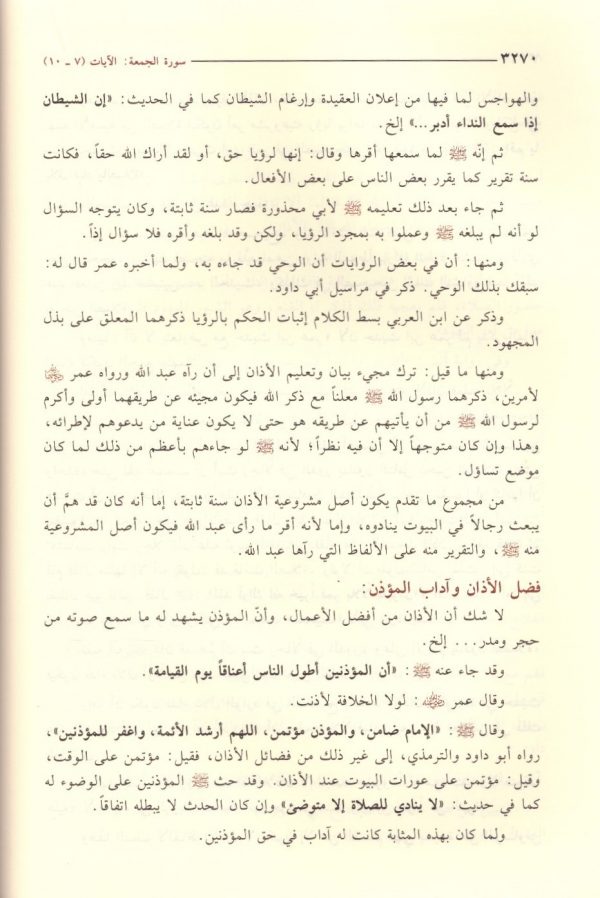 ٣٢٧٠ سورة الجمعة: الآيات (٧ ـ ١٠)
والهواجس لما فيها من إعلان العقيدة وإرغام الشيطان كما في الحديث: «إن الشيطان
إذا سمع النداء أدبر...» إلخ.
ثم إنّه ﷺ لما سمعها أقرها وقال: إنها لرؤيا حق، أو لقد أراك الله حقاً، فكانت
سنة تقرير كما يقرر بعض الناس على بعض الأفعال.
ثم جاء بعد ذلك تعليمه ﷺ لأبي محذورة فصار سنة ثابتة، وكان يتوجه السؤال
لو أنه لم يبلغه ﷺ وعملوا به بمجرد الرؤيا، ولكن وقد بلغه وأقره فلا سؤال إذاً.
ومنها: أن في بعض الروايات أن الوحي قد جاءه به، ولما أخبره عمر قال له:
سبقك بذلك الوحي. ذكر في مراسيل أبي داود.
وذكر عن ابن العربي بسط الكلام إثبات الحكم بالرؤيا ذكرهما المعلق على بذل
المجهود.
ومنها ما قيل: ترك مجيء بيان وتعليم الأذان إلى أن رآه عبد الله ورواه عمر ﷺ
لأمرين، ذكرهما رسول الله ﷺ معلناً مع ذكر الله فيكون مجيئه عن طريقهما أولى وأكرم
لرسول الله ﷺ من أن يأتيهم عن طريقه هو حتى لا يكون عناية من يدعوهم لإطرائه،
وهذا وإن كان متوجهاً إلا أن فيه نظراً؛ لأنه ﷺ لو جاءهم بأعظم من ذلك لما كان
موضع تساؤل.
من مجموع ما تقدم يكون أصل مشروعية الأذان سنة ثابتة، إما أنه كان قد همَّ أن
يبعث رجالاً في البيوت ينادوه، وإما لأنه أقر ما رأى عبد الله فيكون أصل المشروعية
منه ﷺ، والتقرير منه على الألفاظ التي رآها عبد الله.
فضل الأذان وآداب المؤذن:
لا شك أن الأذان من أفضل الأعمال، وأنّ المؤذن يشهد له ما سمع صوته من
حجر ومدر... إلخ.
وقد جاء عنه ﷺ: «أن المؤذنين أطول الناس أعناقاً يوم القيامة».
وقال عمر رضي الله عنه: لولا الخلافة لأذنت.
وقال ﷺ: «الإمام ضامن، والمؤذن مؤتمن، اللهم أرشد الأئمة، واغفر للمؤذنين»،
رواه أبو داود والترمذي، إلى غير ذلك من فضائل الأذان، فقيل: مؤتمن على الوقت،
وقيل: مؤتمن على عورات البيوت عند الأذان. وقد حث ﷺ المؤذنين على الوضوء له
كما في حديث: «لا ينادي للصلاة إلا متوضئ» وإن كان الحدث لا يبطله اتفاقاً.
ولما كان بهذه المثابة كانت له آداب في حق المؤذنين.